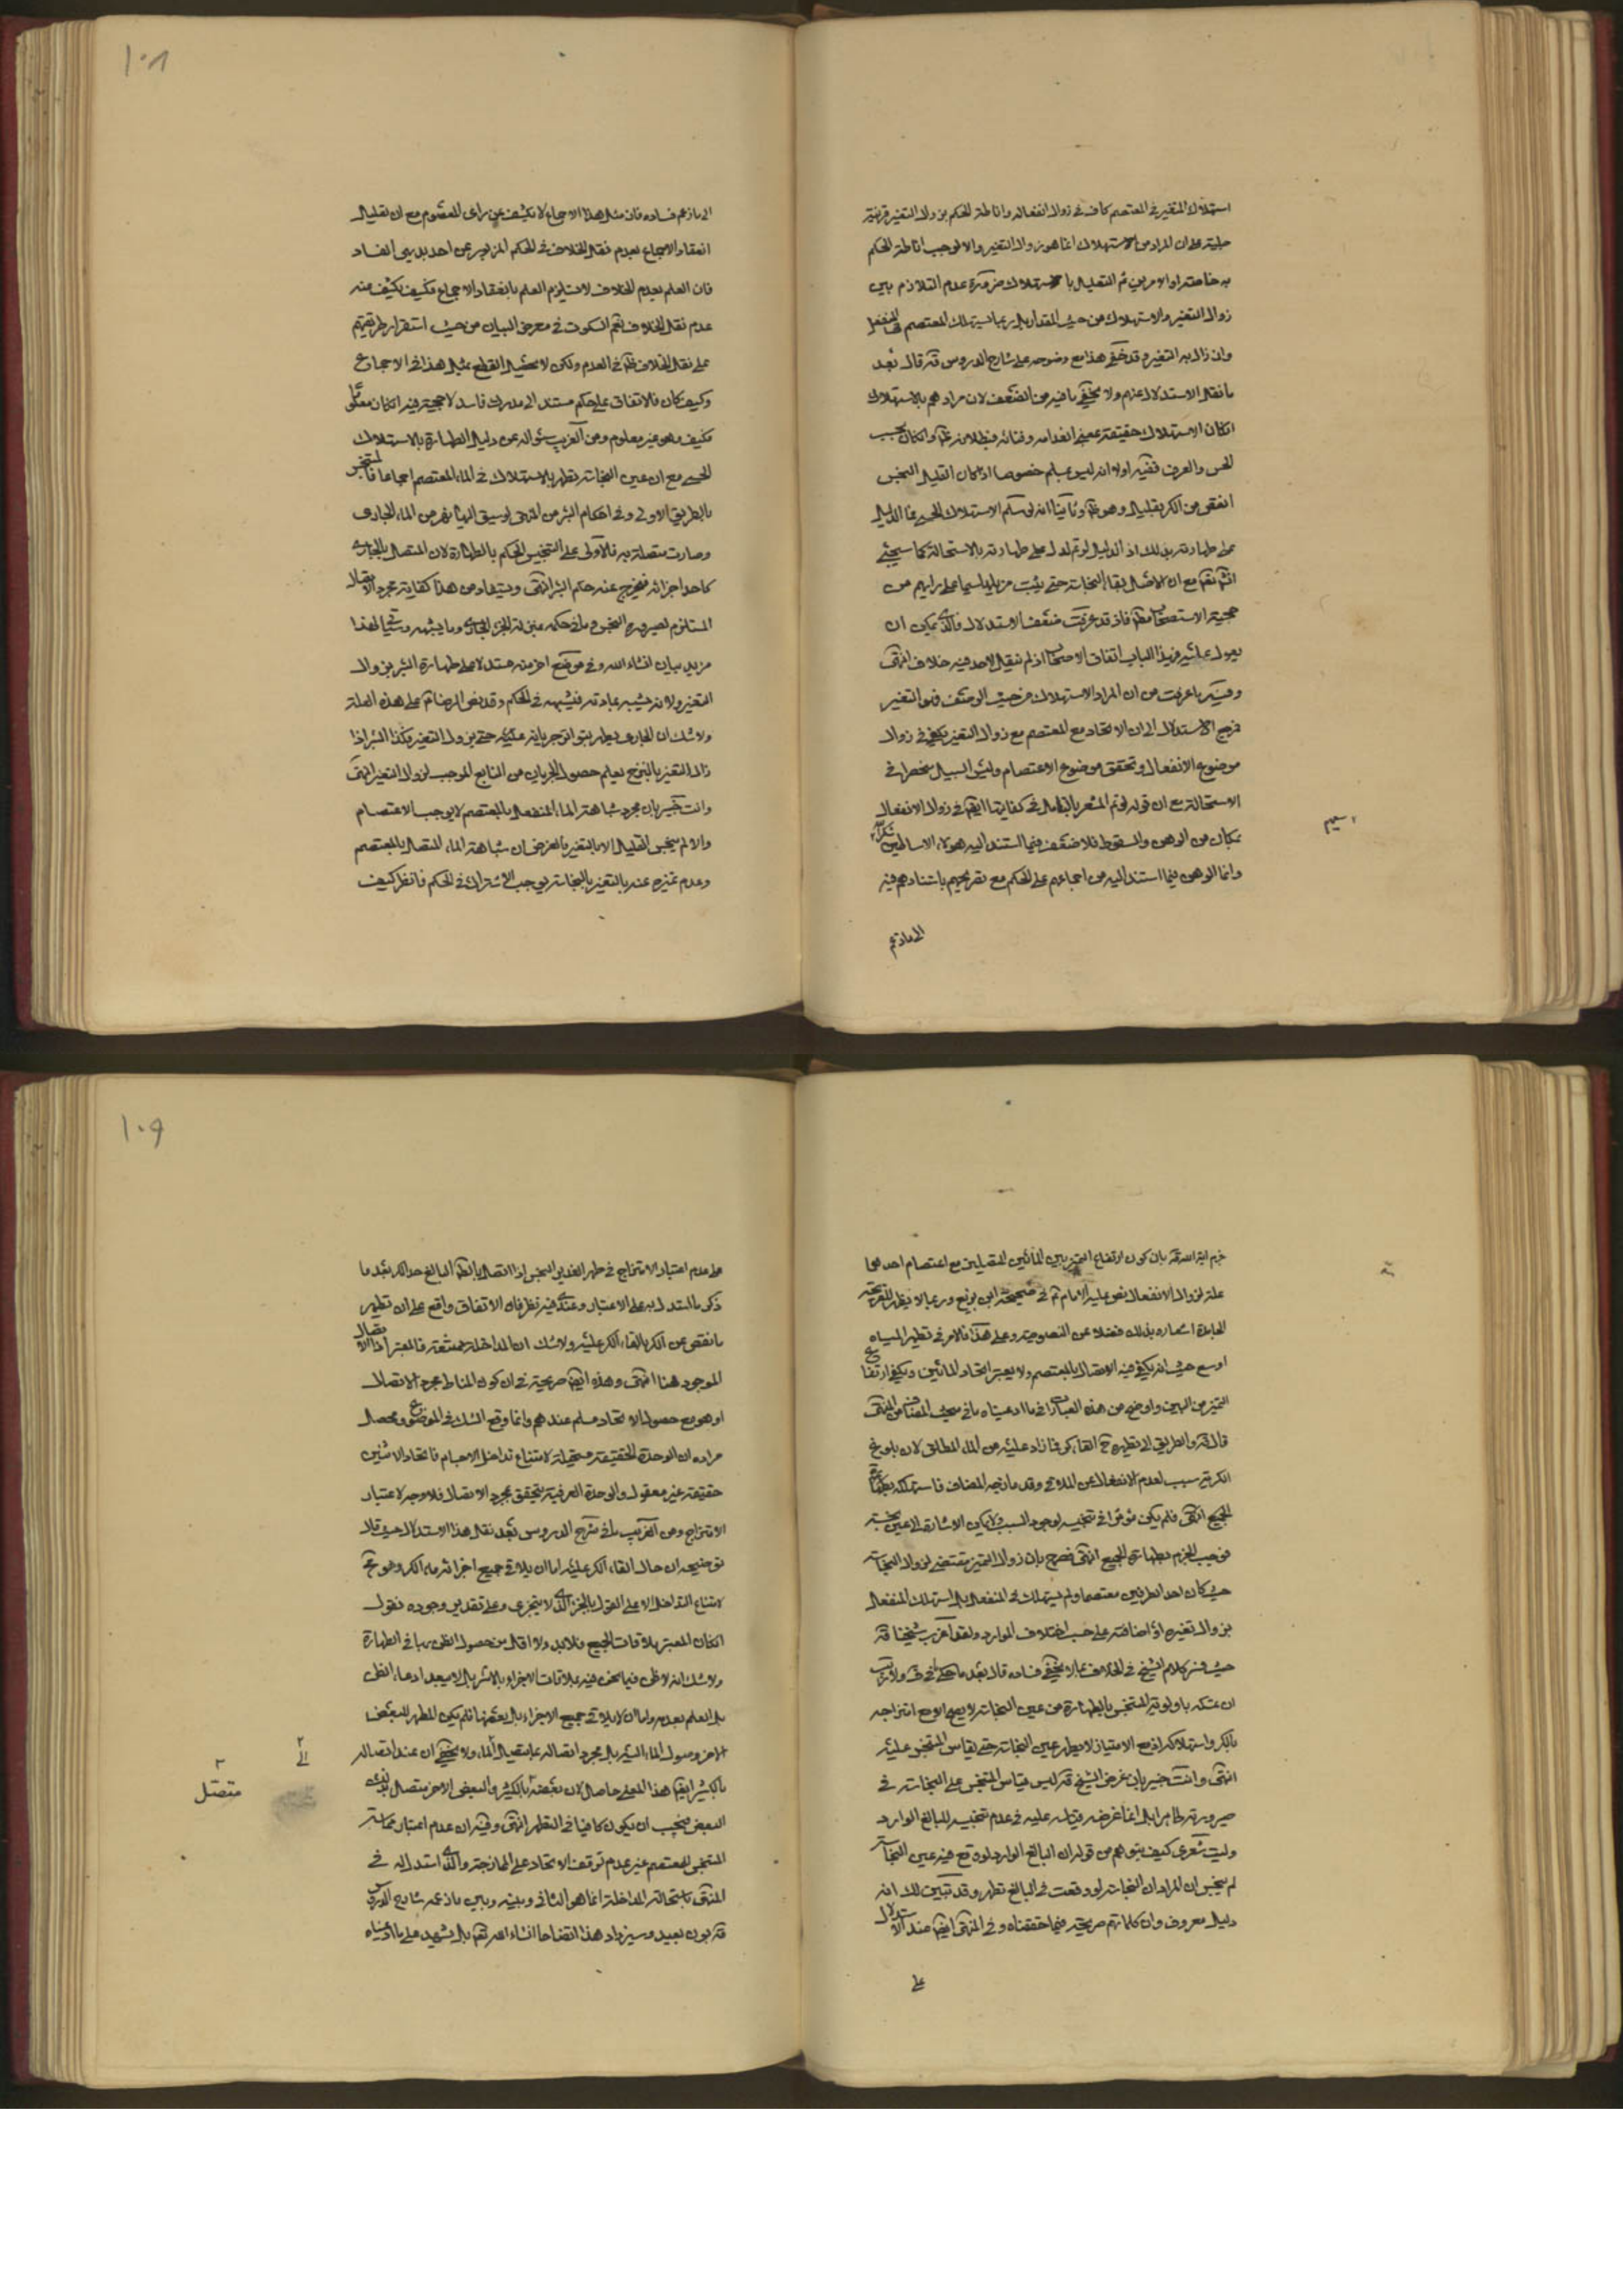 استهلاك المتغير في المعتصم كاف في زوال انفعاله واناطة الحكم بزوال التغير قرينة
جلية على ان المراد من الاستهلاك انما هو زوال التغير والا لوجب اناطة الحكم
به خاصته او الامرين ثم التعليل بالاستهلاك ضرورة عدم التلازم بين
زوال التغير والاستهلاك من حيث المقدار بل ربما استهلك المعتصم في المنفعل
وان زال به التغير وقد خفي هذا مع وضوحه على شارح الدروس قده قال بعد
ما نقل الاستدلال عنهم ولا يخفى ما فيه من الضعف لان مرادهم بالاستهلاك
ان كان الاستهلاك حقيقة بمعنى انعدامه وفنائه فبطلانه ظ وان كان بحسب
الحس والعرف ففيه اولا انه ليس بمسلم خصوصا اذا كان القليل النجس
انقص من الكر بقليل وهو ظ وثانيا انه لو سلم الاستهلاك الحسي فما الدليل
على طهارته بذلك اذ الدليل لو تم لدل على طهارته بالاستحالة كما سيجئ
انشاء تعم مع ان الاصل بقاء النجاسة حتى يثبت مزيلها سيما على رايهم من
حجية الاستصحاب مطلقا فاذ قد عرفت ضعف الاستدلال فالذي يمكن ان
يعول عليه في هذا الباب اتفاق الاصحاب اذ لم ينقل لاحد فيه خلاف انتهى
وفيه ما عرفت من ان المراد الاستهلاك من حيث الوصف فهو التغير
فرجع الاستدلال الى ان الاتحاد مع المعتصم مع زوال التغير يكفي في زوال
موضوع الانفعال وتحقق موضوع الاعتصام وليس السبيل منحصرا في
الاستحالة مع ان قوله لو تم المشعر بالتامل في كفايتها ايضا في زوال الانفعال
بمكان من الوهن والسقوط فلا ضعف فيما استند اليه هؤلاء الاساطين
وانما الوهن فيما استند اليه من اجماعهم على الحكم مع تصريحهم باستنادهم فيه
الى ما زعم
١٠٨
الى ما زعم فساده فان مثل هذا الاجماع لا يكشف عن راى المعصوم مع ان تعليل
انعقاد الاجماع بعدم نقل الخلاف في الحكم المزبور عن احد بديهى الفساد
فان العلم بعدم الخلاف لا يستلزم العلم بانعقاد الاجماع فكيف يكشف عنه
عدم نقل الخلاف نعم السكوت في معرض البيان من حيث استقرار طريقتهم
على نقل الخلاف ظ في العدم ولكن لا يحصل القطع بمثل هذا في الاجماع
وكيف كان فالاتفاق على حكم مستند الى مدرك فاسد لا حجية فيه ان كان معلوما
فكيف وهو غير معلوم ومن الغريب سؤاله عن دليل الطهارة بالاستهلاك
الحسي مع ان عين النجاسة تطهر بالاستهلاك في الماء المعتصم اجماعا فالمتنجس
بالطريق الاولى وفي احكام البئر من المنتهى لو سيق اليها نهر من الماء الجارى
وصارت متصلة به فالاولى على التنجيس الحكم بالطهارة لان المتصل بالجارى
كاحد اجزائه فيخرج عنه حكم البئر انتهى ويستفاد من هذا كفاية مجرد الاتصال
المستلزم لصيرورة النجس في حكمه بمنزلة الجزء الجارى وما يشبهه وسيجئ لهذا
مزيد بيان انشاء الله وفي موضع اخر منه مستدلا على طهارة البئر بزوال
التغير ولانه يشبه بمادته فيشبهه في الحكم وقد نص الرضا ع على هذه العلة
ولا شك ان الجارى يطهر بتواتر جريانه عليه حتى يزول التغير فكذا البئر اذا
زال التغير بالنزح يعلم حصول الجريان من النابع الموجب لزوال التغير انتهى
وانت خبير بان مجرد شباهة الماء المنفعل بالمعتصم لا يوجب الاعتصام
والا لم ينجس القليل الا بالتغير فالغرض ان شباهة الماء المتصل بالمعتصم
وعدم تميزه عنه بالتغير بالنجاسة يوجب الاشتراك في الحكم فانظر كيف
جزم اية الله قده بان كون ارتفاع التميز بين المائين المتصلين مع اعتصام احدهما
علة لزوال الانفعال نص عليه الامام ع في صحيحة ابن بزيع وربما لا يظهر للقريحة
الجامدة اشعاره بذلك فضلا عن النصوصية وعلى هذا فالامر في تطهير المياه
اوسع حيث انه يكفي فيه الاتصال بالمعتصم ولا يعتبر اتحاد المائين ويكفي ارتفاع
التميز من البين واوضح من هذه العبارة في ما ادعيناه ما في مبحث المضاف من المنتهى
قال قده والطريق الى تطهيره ح القاء كر فما زاد عليه من الماء المطلق لان بلوغ
الكرية سبب لعدم الانفعال عن الملاقي وقد مازجه المضاف فاستهلكه فطهر
الجميع انتهى فلم يكن مؤثرا في تنجيسه لوجود السبب ولا يمكن الاشارة الى عين نجسة
فوجب الجزم بطهارة الجميع انتهى فصرح بان زوال التميز مقتضى لزوال النجاسة
حيث كان احد الطرفين معتصما ولم يستهلك في المنفعل بل استهلك المنفعل
بزوال تغيره او اضافته على حسب اختلاف الموارد ولقد اغرب شيخنا قده
حيث فسر كلام الشيخ في الخلاف بما لا يخفى فساده قال بعد ما حكى
ان تمسكه باولوية المتنجس بالطهارة من عين النجاسة لا يصح الا مع امتزاجه
بالكر واستهلاكه اذ مع الامتياز لا يطهر عين النجاسة حتى يقاس المتنجس عليه
انتهى وانت خبير بان غرض الشيخ قده ليس قياس المتنجس على النجاسة في
صيرورته طاهرا بل انما غرضه قياسه عليه في عدم تنجيسه للبالغ الوارد
وليت شعرى كيف يتوهم من قوله ان البالغ الوارد لو وقع فيه عين النجاسة
لم ينجس ان المراد ان النجاسة لو وقعت في البالغ تطهر وقد تبين لك انه
دليل معروف وان كلماتهم صريحة فيما حققناه وفي المنتهى ايضا عند الاستدلال
على
١٠٩
على عدم اعتبار الامتزاج في طهر الغدير النجس اذا اتصل بالطاهر البالغ حد الكر بعد ما
ذكر ما استدل به على الاعتبار وعندى فيه نظر فان الاتفاق واقع على ان تطهير
ما نقص عن الكر بالقاء الكر عليه ولا شك ان المداخلة ممتنعة فالمعتبر اذا الاتصال
الموجود هنا انتهى وهذه ايضا صريحة في ان كون المناط مجرد الاتصال
او هو مع حصول الاتحاد مسلم عندهم وانما وقع الشك في الموضوع ومحصل
مراده ان الوحدة الحقيقية مستحيلة لامتناع تداخل الاجسام فاتحاد الاثنين
حقيقة غير معقول والوحدة العرفية يتحقق بمجرد الاتصال فلا وجه لاعتبار
الامتزاج ومن الغريب ما في شرح الدروس بعد نقل هذا الاستدلال حيث قال
توضيحه ان حال القاء الكر عليه اما ان يلاقي جميع اجزائه ماء الكر وهو مح
لامتناع التداخل الا على القول بالجزء الذي لا يتجزى وعلى تقدير وجوده نقول
ان كان المعتبر ملاقات الجميع فلا بد ولا اقل من حصول الظن بها في الطهارة
ولا شك انه لا ظن فيما نحن فيه بملاقات الاجزاء بالاسر بل لا يبعد ادعاء الظن
بل العلم بعدمه واما ان لا يلاقي جميع الاجزاء بل بعضها فلم يكن المطهر للبعض
الاخر وصول الماء اليه بل مجرد اتصاله بما يتصل الماء ولا يخفى ان عند اتصاله
الى
بالكثير ايضا هذا المعنى حاصل لان بعضه بالكثير والبعض الاخر متصل بذلك
متصل
البعض فيجب ان يكون كافيا في التطهر انتهى وفيه ان عدم اعتبار مماسة
المتنجس للمعتصم غير عدم توقف الاتحاد على الممازجة والذي استدل به في
المنتهى باستحالة المداخلة انما هو الثاني وبينه وبين ما زعمه شارح الدروس
قده بون بعيد وسيزداد هذا اتضاحا انشاء الله تعم بل يشهد على ما ادعيناه